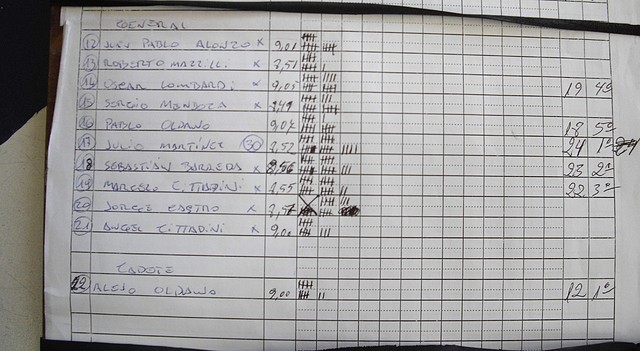 GENERAL
12 JUAN PABLO ALONZO x 9,01
13 ROBERTO x
14 OSCAR LOMBARDI x 9,05 19 4º
15 SERGIO MENDOZA x
16 PABLO OLDANO 9,02 18 5º
17 JULIO MARTINEZ 30 2,52 24 1º
18 SEBASTIAN x 23 2º
19 MARCELO CITTADINI x 2,55 22 3º
20 JORGE CASTRO x
21 ANGEL CITTADINI x 9,01
CADETE
22 ALEJO OLDANO 9,00 12 1º